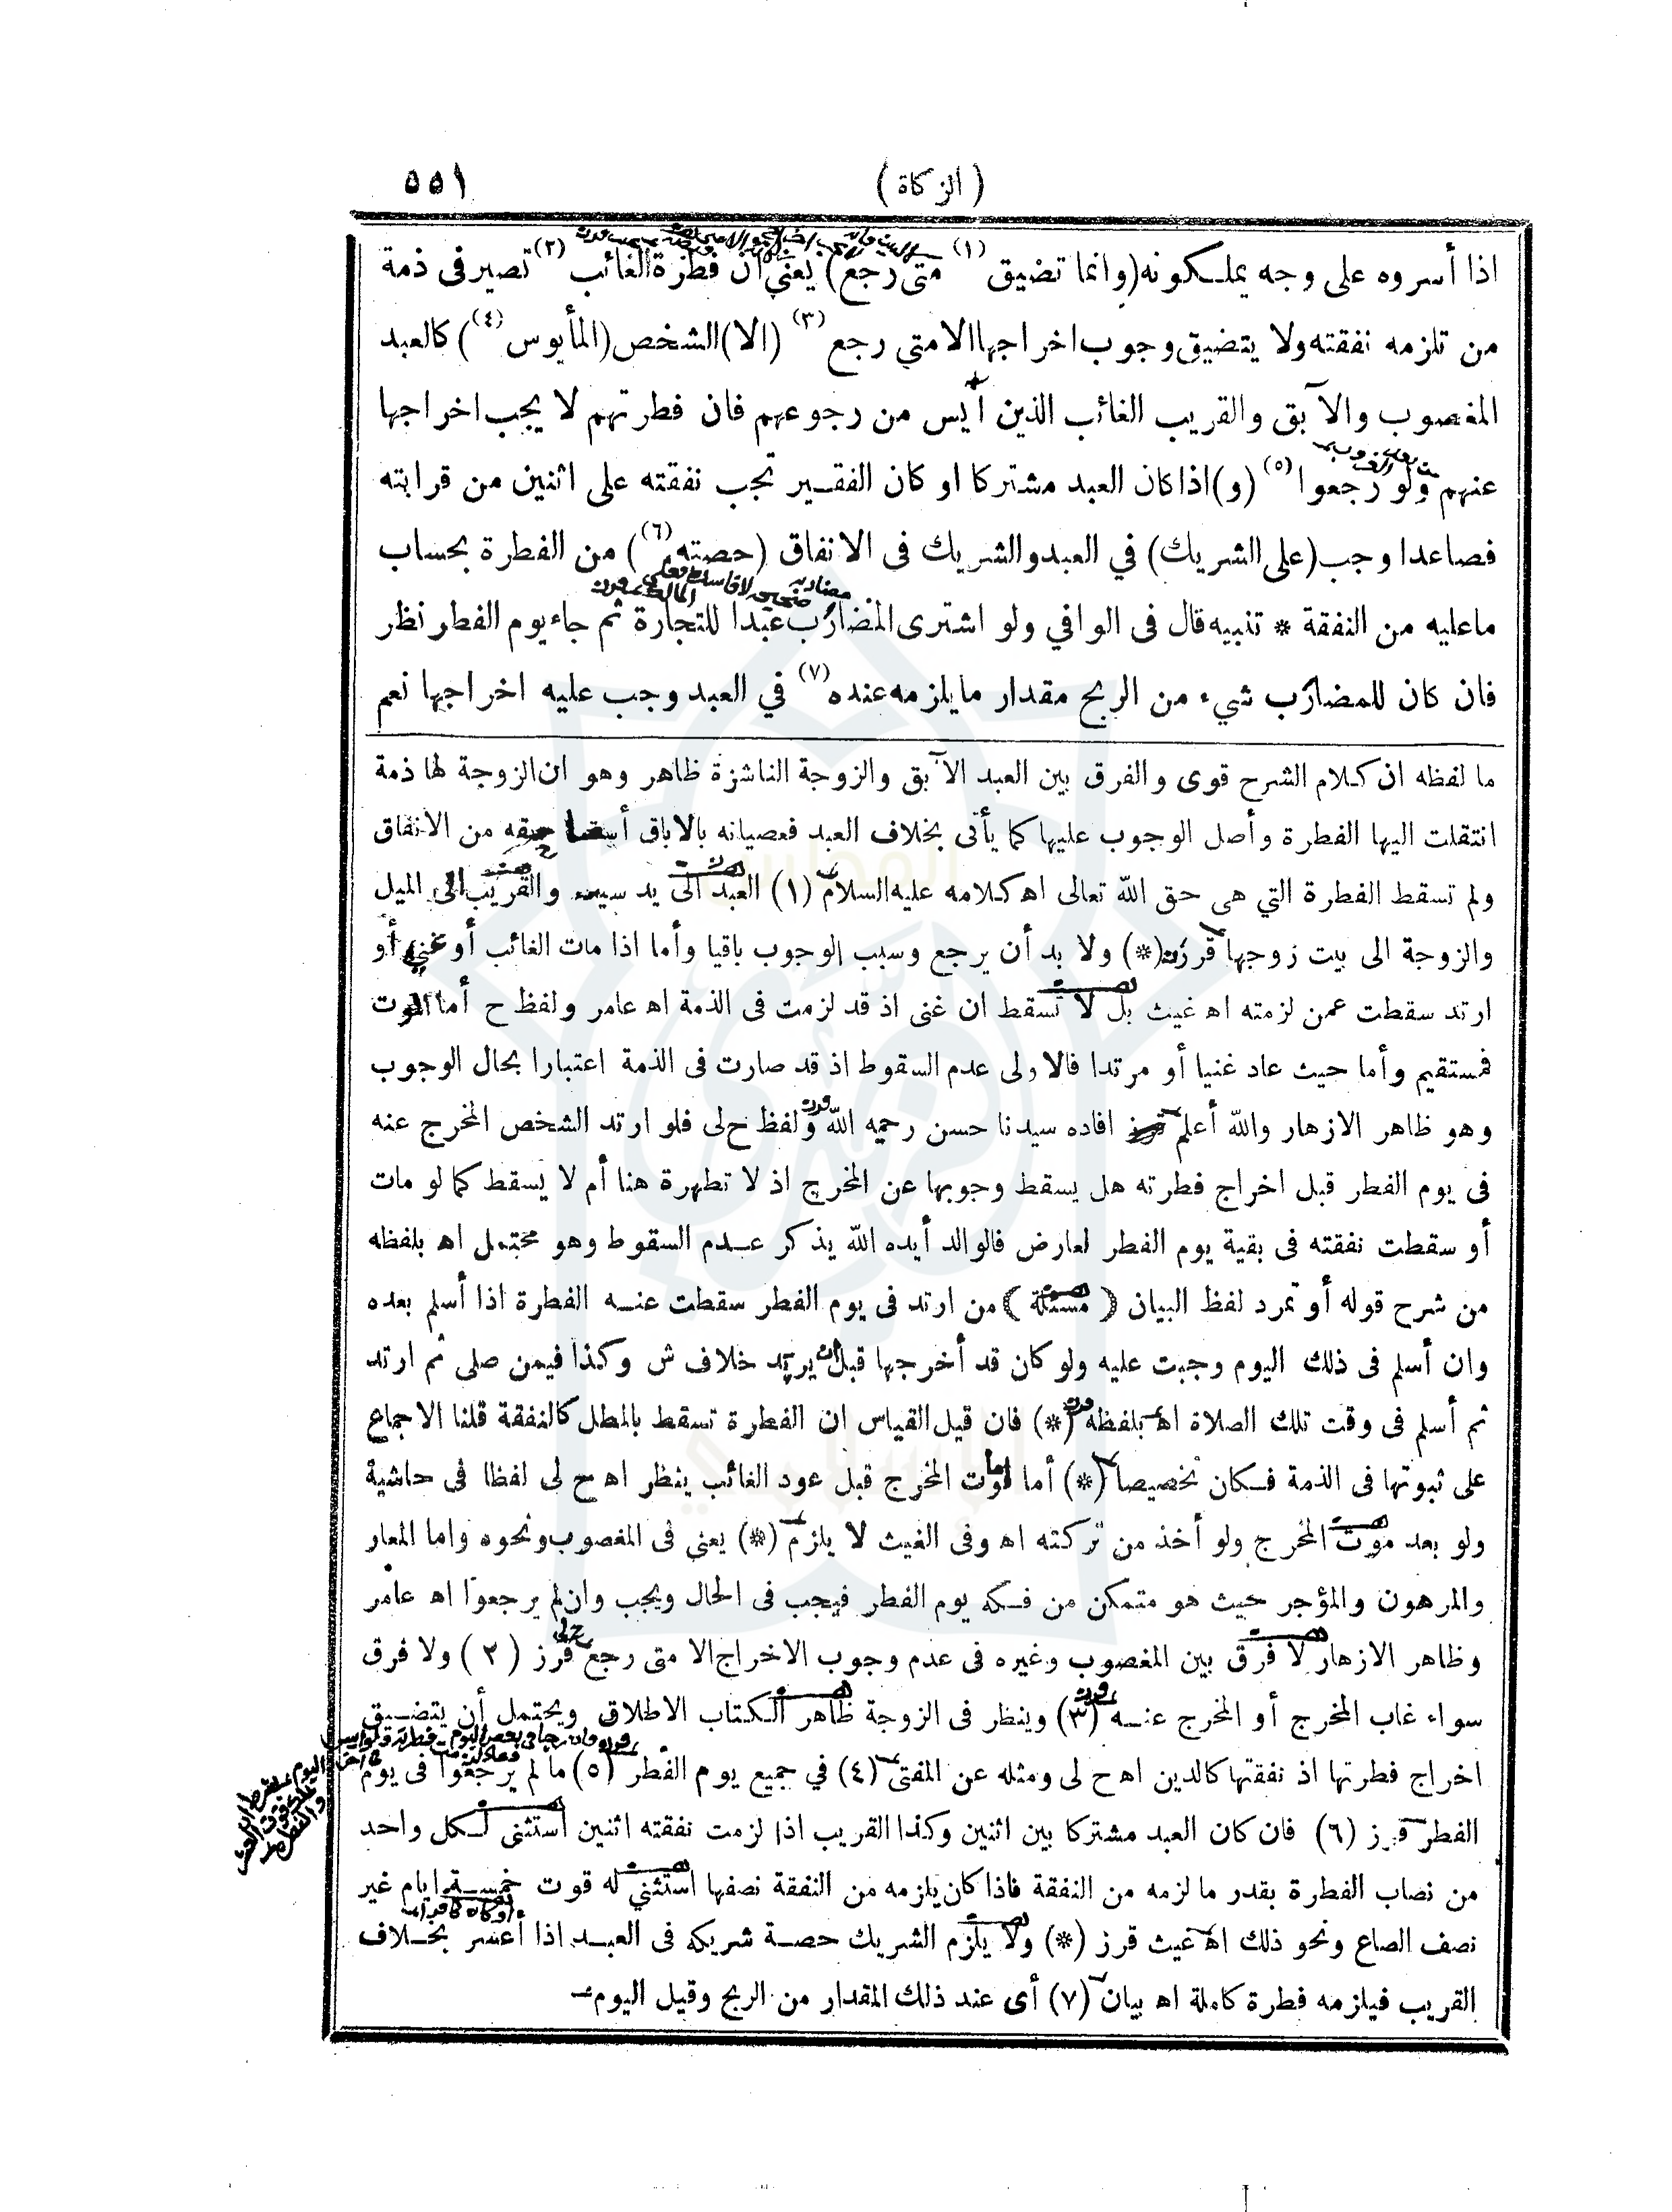 (الزكاة)
٥٥١
اذا أسروه على وجه يملكونه (وانما تضيق (١) متى رجع) يعني ان فطرة الغائب (٢) تصير فى ذمة
من تلزمه نفقته ولا يتضيق وجوب اخراجها الا متى رجع (٣) (الا) الشخص (المأيوس (٤)) كالعبد
المغصوب والآبق والقريب الغائب الذين أيس من رجوعهم فان فطرتهم لا يجب اخراجها
عنهم ولو رجعوا (٥) (و) اذا كان العبد مشتركا او كان الفقير تجب نفقته على اثنين من قرابته
فصاعدا وجب (على الشريك) في العبد والشريك فى الانفاق (حصته (٦)) من الفطرة بحساب
ماعليه من النفقة * تنبيه قال فى الوافي ولو اشترى المضارب عبدا للتجارة ثم جاء يوم الفطر نظر
فان كان للمضارب شيء من الربح مقدار ما يلزمه عنده (٧) في العبد وجب عليه اخراجها نعم
ما لفظه ان كلام الشرح قوى والفرق بين العبد الآبق والزوجة الناشزة ظاهر وهو ان الزوجة لها ذمة
انتقلت اليها الفطرة وأصل الوجوب عليها كما يأتى بخلاف العبد فعصيانه بالاباق أسقط حقه من الانفاق
ولم تسقط الفطرة التي هى حق الله تعالى اه كلامه عليه السلام (١) العبد الى يد سيده والقريب الى الميل
والزوجة الى بيت زوجها قرز (*) ولا بد أن يرجع وسبب الوجوب باقيا وأما اذا مات الغائب أو غني أو
ارتد سقطت عمن لزمته اه غيث بل لا تسقط ان غنى اذ قد لزمت فى الذمة اه عامر ولفظ ح أما الموت
فمستقيم وأما حيث عاد غنيا أو مرتدا فالاولى عدم السقوط اذ قد صارت فى الذمة اعتبارا بحال الوجوب
وهو ظاهر الازهار والله أعلم قرز افاده سيدنا حسن رحمه الله ولفظ ح لى فلو ارتد الشخص المخرج عنه
فى يوم الفطر قبل اخراج فطرته هل يسقط وجوبها عن المخرج اذ لا تطهرة هنا أم لا يسقط كما لو مات
أو سقطت نفقته فى بقية يوم الفطر لعارض فالوالد أيده الله يذكر عدم السقوط وهو محتمل اه بلفظه
من شرح قوله أو تمرد لفظ البيان (مسئلة) من ارتد فى يوم الفطر سقطت عنه الفطرة اذا أسلم بعده
وان أسلم فى ذلك اليوم وجبت عليه ولو كان قد أخرجها قبل ان يرتد خلاف ش وكذا فيمن صلى ثم ارتد
ثم أسلم فى وقت تلك الصلاة اه بلفظه (*) فان قيل القياس ان الفطرة تسقط بالمطل كالنفقة قلنا الاجماع
على ثبوتها فى الذمة فكان تخصيصا (*) أما لو مات المخرج قبل عود الغائب ينظر اه ح لى لفظا فى حاشية
ولو بعد موت المخرج ولو أخذ من تركته اه وفى الغيث لا يلزم (*) يعنى فى المغصوب ونحوه واما المعار
والمرهون والمؤجر حيث هو متمكن من فكه يوم الفطر فيجب فى الحال ويجب وان لم يرجعوا اه عامر
وظاهر الازهار لا فرق بين المغصوب وغيره فى عدم وجوب الاخراج الا متى رجع قرز (٢) ولا فرق
سواء غاب المخرج أو المخرج عنه (٣) وينظر فى الزوجة ظاهر الكتاب الاطلاق ويحتمل أن يتضيق
اخراج فطرتها اذ نفقتها كالدين اه ح لى ومثله عن المفتى (٤) في جميع يوم الفطر (٥) ما لم يرجعوا فى يوم
الفطر قرز (٦) فان كان العبد مشتركا بين اثنين وكذا القريب اذا لزمت نفقته اثنين استثنى لكل واحد
من نصاب الفطرة بقدر ما لزمه من النفقة فاذا كان يلزمه من النفقة نصفها استثني له قوت خمسة ايام غير
نصف الصاع ونحو ذلك اه غيث قرز (*) ولا يلزم الشريك حصة شريكه فى العبد اذا أعسر بخلاف
القريب فيلزمه فطرة كاملة اه بيان (٧) أى عند ذلك المقدار من الربح وقيل اليوم